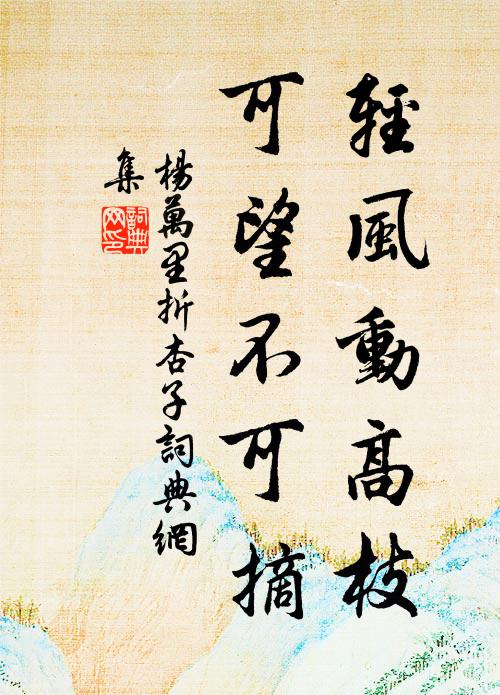 輕風動高枝
可望不可摘
楊萬里折杏子詞典網
集
詞典
网印